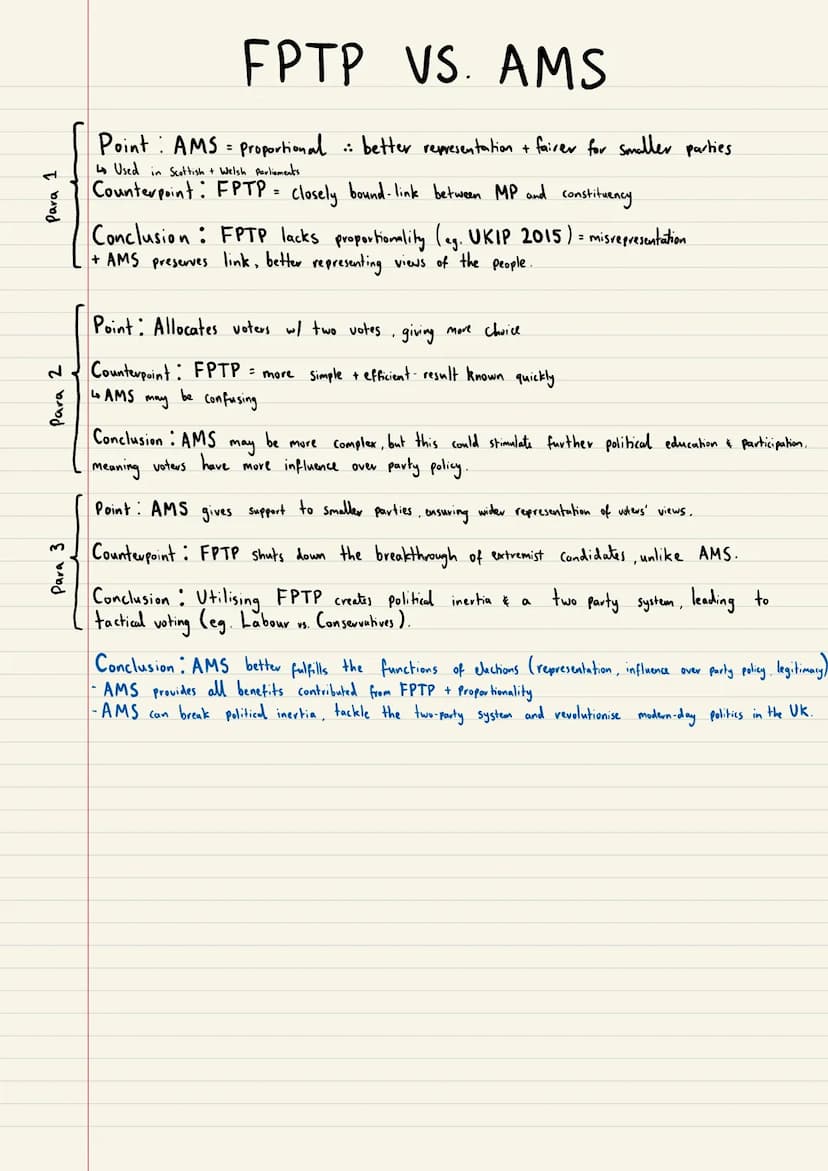 FPTP VS. AMS
Para 1
Point : AMS = proportional ∴ better representation + fairer for smaller parties
↳ Used in Scottish + Welsh Parliaments
Counterpoint : FPTP = closely bound-link between MP and constituency
Conclusion : FPTP lacks proportionality (eg. UKIP 2015) = misrepresentation
+ AMS preserves link, better representing views of the people.
Para 2
Point : Allocates voters w/ two votes, giving more choice
Counterpoint : FPTP = more simple + efficient - result known quickly
↳ AMS may be confusing
Conclusion : AMS may be more complex, but this could stimulate further political education & participation,
meaning voters have more influence over party policy.
Para 3
Point : AMS gives support to smaller parties, ensuring wider representation of voters' views.
Counterpoint : FPTP shuts down the breakthrough of extremist candidates, unlike AMS.
Conclusion : Utilising FPTP creates political inertia & a two party system, leading to
tactical voting (eg. Labour vs. Conservatives).
Conclusion : AMS better fulfills the functions of elections (representation, influence over party policy, legitimacy)
- AMS provides all benefits contributed from FPTP + Proportionality
- AMS can break political inertia, tackle the two-party system and revolutionise modern-day politics in the UK.